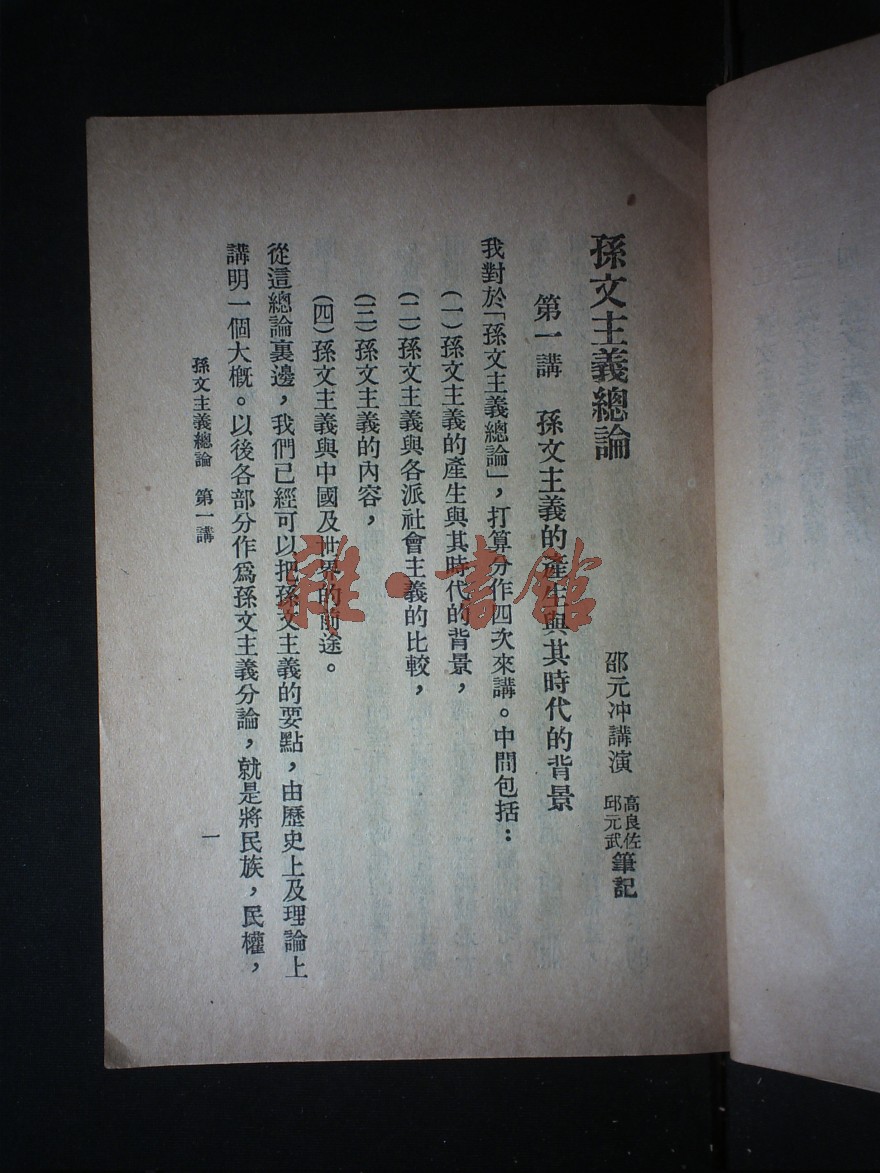 孫文主義總論
邵元冲講演
高良佐
邱元武
筆記
第一講　孫文主義的產生與其時代的背景
我對於「孫文主義總論」，打算分作四次來講。中間包括：
(一)孫文主義的產生與其時代的背景，
(二)孫文主義與各派社會主義的比較，
(三)孫文主義的內容，
(四)孫文主義與中國及世界的前途。
從這總論裏邊，我們已經可以把孫文主義的要點，由歷史上及理論上
講明一個大概。以後各部分作爲孫文主義分論，就是將民族，民權，
孫文主義總論　第一講
一
雜·書館